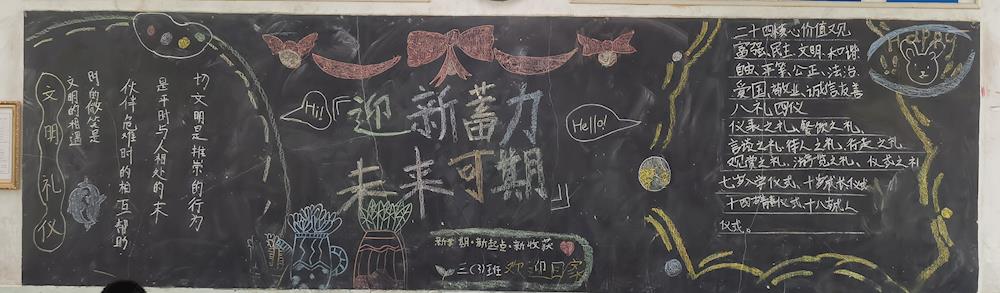 文明礼仪
切文明是推崇的行为
是平时与人相处的末
伙伴危难时的相互帮助
时的微笑是
文明的相遇
Hi!
「迎新蓄力
未来可期」
Hello!
新学期·新起点·新收获
三(3)班 欢迎回家
二十四核心价值观
富强、民主、文明、和谐
自由、平等、公正、法治
爱国、敬业、诚信、友善
八礼、四仪
仪表之礼、餐饮之礼、
言谈之礼、待人之礼、行走之礼、
观赏之礼、游览之礼、仪式之礼
七岁入学仪式、十岁成长仪式
十四 仪式 十八成人
仪式。
Happy